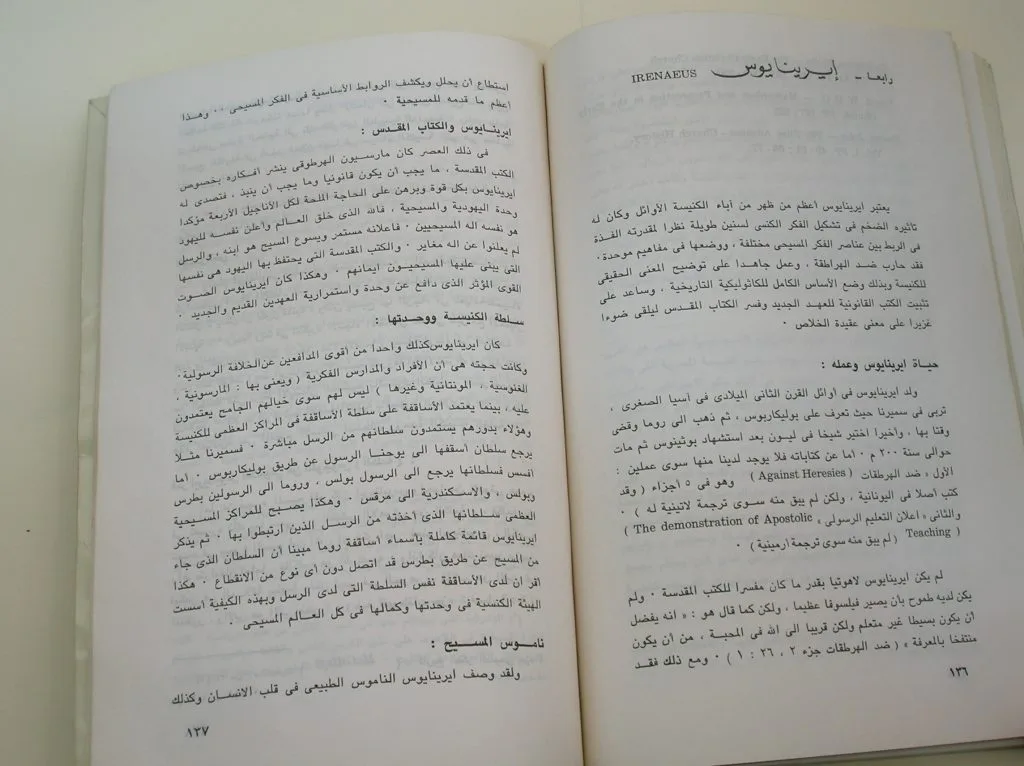 رابعا – إيرينايوس IRENAEUS
يعتبر ايرينايوس اعظم من ظهر من آباء الكنيسة الأوائل وكان له
تأثيره الضخم فى تشكيل الفكر الكنسى لسنين طويلة نظرا لمقدرته الفذة
فى الربط بين عناصر الفكر المسيحى مختلفة ، ووضعها فى مفاهيم موحدة.
فقد حارب ضد الهراطقة ، وعمل جاهدا على توضيح المعنى الحقيقى
للكنيسة وبذلك وضع الأساس الكامل للكاثوليكية التاريخية ، وساعد على
تثبيت الكتب القانونية للعهد الجديد وفسر الكتاب المقدس ليلقى ضوءا
غزيرا على معنى عقيدة الخلاص .
حياة ايرينايوس وعمله :
ولد ايرينايوس فى اوائل القرن الثانى الميلادى فى آسيا الصغرى ،
تربى فى سميرنا حيث تعرف على بوليكاربوس ، ثم ذهب الى روما وقضى
وقتا بها ، وأخيرا اختير شيخا فى ليون بعد استشهاد بوثينوس ثم مات
حوالى سنة ٢٠٠ م . اما عن كتاباته فلا يوجد لدينا منها سوى عملين :
الأول ، ضد الهرطقات ( Against Heresies ) وهو فى ٥ أجزاء ( وقد
كتب اصلا فى اليونانية ، ولكن لم يبق منه سوى ترجمة لاتينية له ) .
والثانى « اعلان التعليم الرسولى » ( The demonstration of Apostolic
Teaching ) ( لم يبق منه سوى ترجمة ارمينية ) .
لم يكن ايرينايوس لاهوتيا بقدر ما كان مفسرا للكتب المقدسة . ولم
يكن لديه طموح بأن يصير فيلسوفا عظيما ، ولكن كما قال هو : « انه يفضل
ان يكون بسيطا غير متعلم ولكن قريبا الى الله فى المحبة ، من ان يكون
منتفخا بالمعرفة » ( ضد الهرطقات جزء ٢ ، ٢٦ : ١ ) . ومع ذلك فقد
١٣٦
استطاع ان يحلل ويكشف الروابط الأساسية فى الفكر المسيحى . . وهذا
اعظم ما قدمه للمسيحية .
ايرينايوس والكتاب المقدس :
فى ذلك العصر كان مارسيون الهرطوقى ينشر افكاره بخصوص
الكتب المقدسة ، ما يجب ان يكون قانونيا وما يجب ان ينبذ ، فتصدى له
ايرينايوس بكل قوة وبرهن على الحاجة الملحة لكل الأناجيل الأربعة مؤكدا
وحدة اليهودية والمسيحية ، فالله الذى خلق العالم وأعلن نفسه لليهود
هو نفسه اله المسيحيين . فاعلانه مستمر ويسوع المسيح هو ابنه ، والرسل
لم يعلنوا عن اله مغاير . والكتب المقدسة التى يحتفظ بها اليهود هى نفسها
التى يبنى عليها المسيحيون ايمانهم . وهكذا كان ايرينايوس الصوت
القوى المؤثر الذى دافع عن وحدة واستمرارية العهدين القديم والجديد .
سلطة الكنيسة ووحدتها :
كان ايرينايوس كذلك واحدا من اقوى المدافعين عن الخلافة الرسولية.
وكانت حجته هى ان الأفراد والمدارس الفكرية ( ويعنى بها : المارسونية ،
الغنوسية ، المونتانية وغيرها ) ليس لهم سوى خيالهم الجامح يعتمدون
عليه ، بينما يعتمد الأساقفة على سلطة الأساقفة فى المراكز العظمى للكنيسة
وهؤلاء بدورهم يستمدون سلطانهم من الرسل مباشرة . فسميرنا مثلا
يرجع سلطان أسقفها الى يوحنا الرسول عن طريق بوليكاربوس . اما
افسس فسلطانها يرجع الى الرسول بولس ، وروما الى الرسولين بطرس
وبولس ، والاسكندرية الى مرقس . وهكذا يصبح للمراكز المسيحية
العظمى سلطانها الذى أخذته من الرسل الذين ارتبطوا بها . ثم يذكر
ايرينايوس قائمة كاملة بأسماء أساقفة روما مبينا ان السلطان الذى جاء
من المسيح عن طريق بطرس قد اتصل دون اى نوع من الانقطاع . هكذا
اقر ان لدى الأساقفة نفس السلطة التى لدى الرسل وبهذه الكيفية أسست
الهيئة الكنسية فى وحدتها وكمالها فى كل العالم المسيحى .
ناموس المسيح :
ولقد وصف ايرينايوس الناموس الطبيعى فى قلب الانسان وكذلك
١٣٧